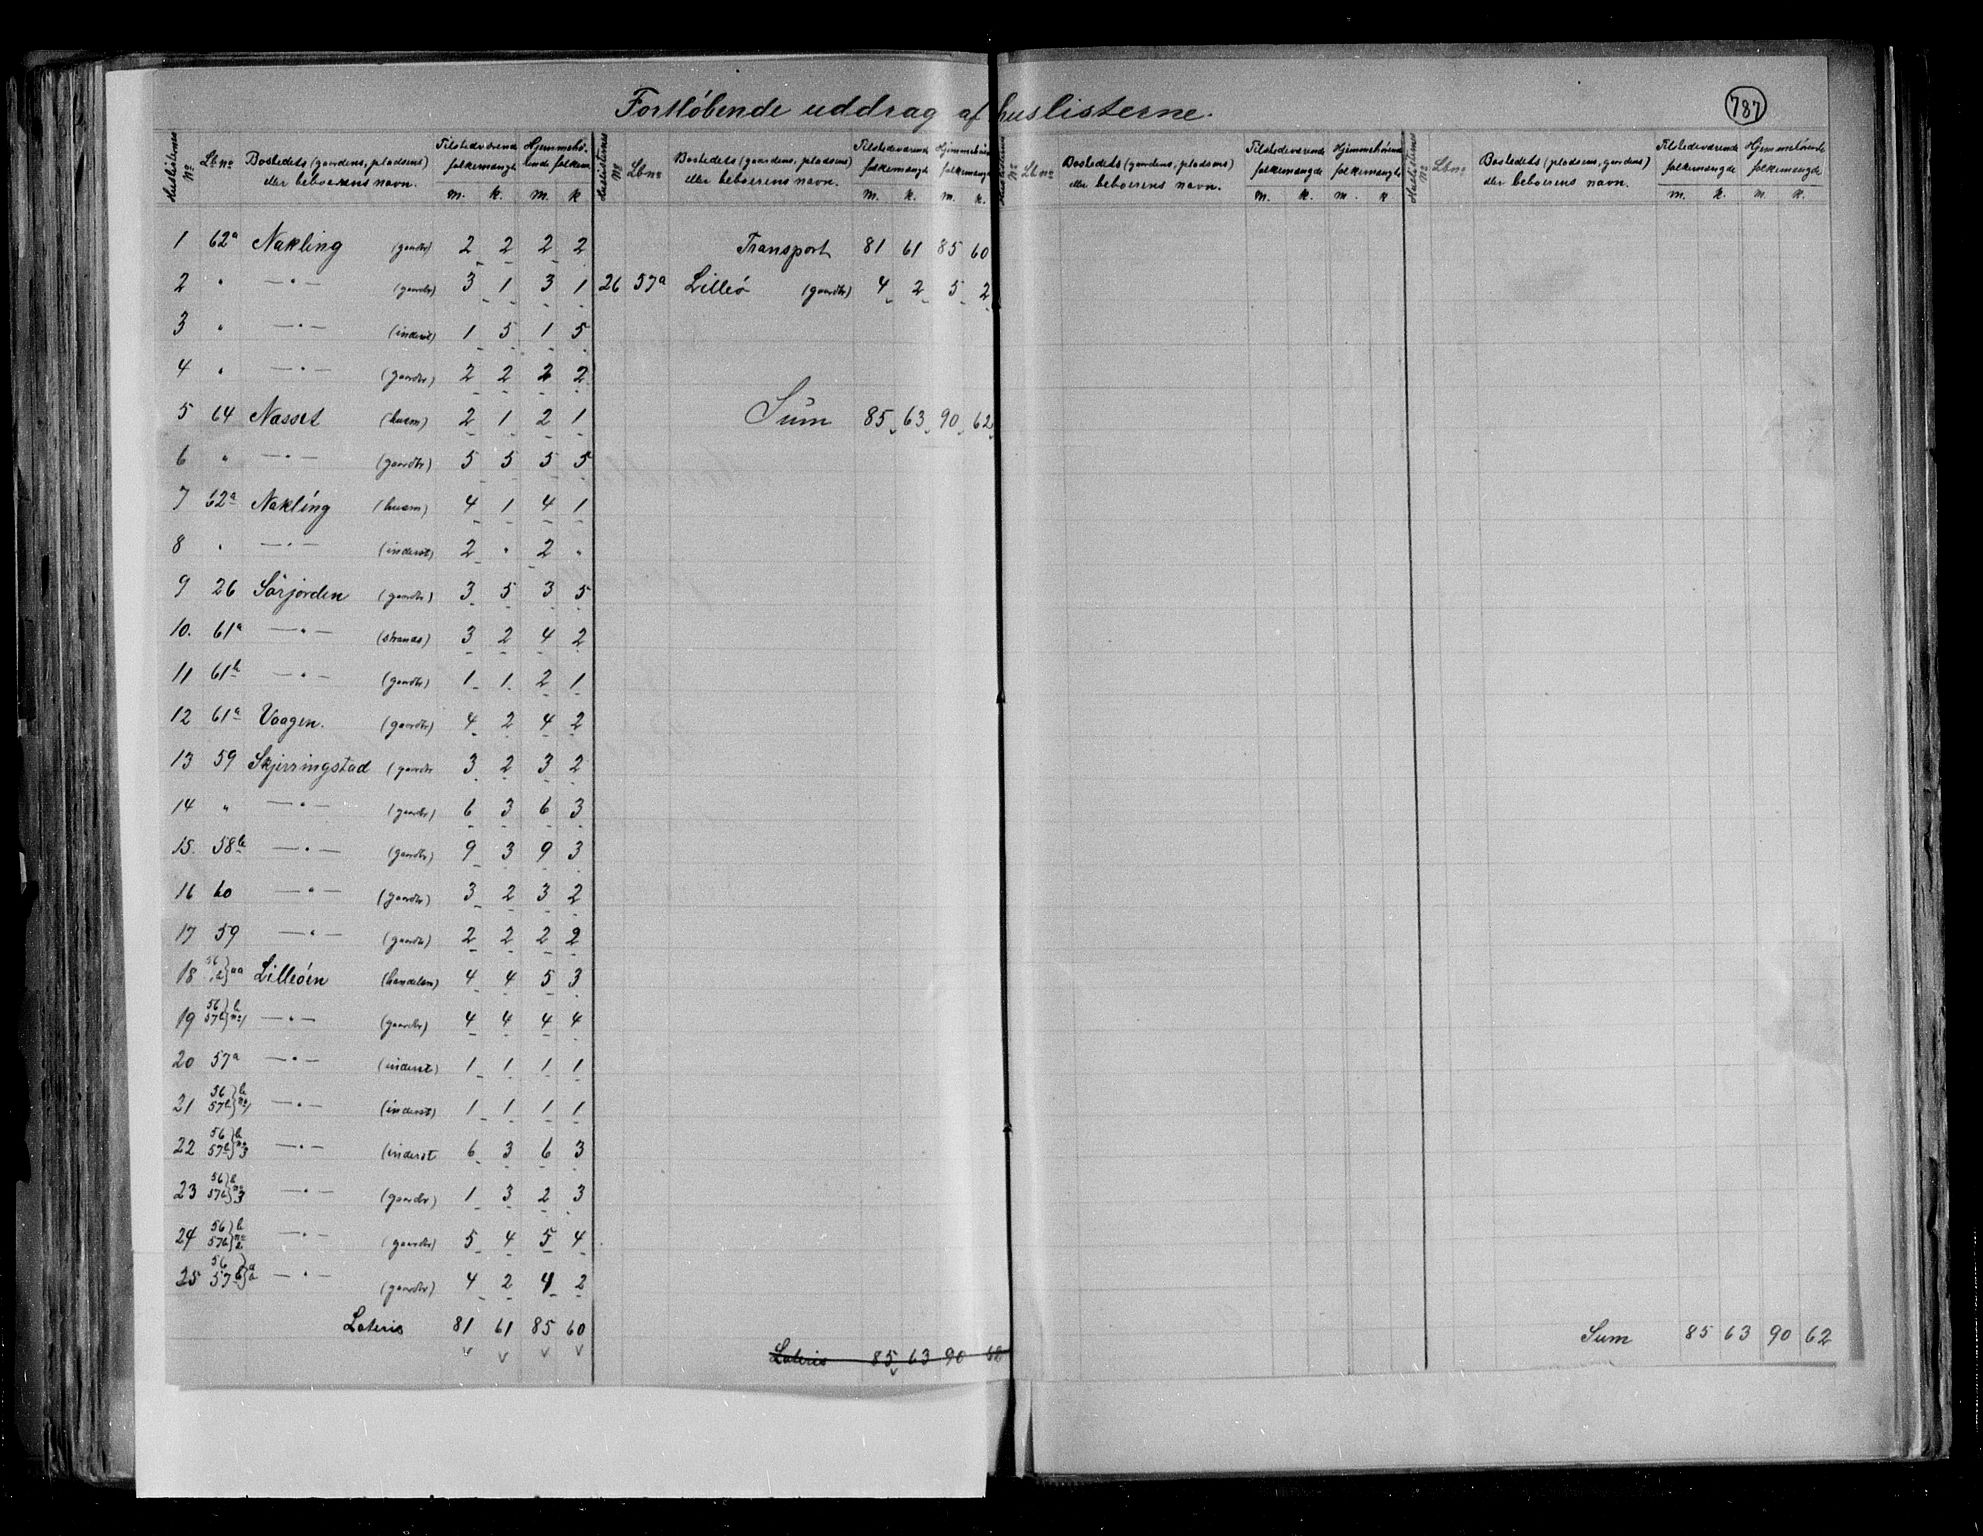 Fortløbende uddrag af huslisterne.
787
Huslisternes No | Lb no | Bostedets (gaardens, pladsens) eller beboerens navn. | Tilstedeværende folkemængde m. k. | Hjemmehørende folkem. m. k
1 62a Nakling (gaardbr) 2 2 2 2
2 " —"— (gaardbr) 3 1 3 1
3 " —"— (inderst) 1 5 1 5
4 " —"— (gaardbr) 2 2 2 2
5 64 Nasset (husm) 2 1 2 1
6 " —"— (gaardbr) 5 5 5 5
7 62a Nakling (husm) 4 1 4 1
8 " —"— (inderst) 2 " 2 "
9 26 Sørjorden (gaardbr) 3 5 3 5
10. 61a —"— (strands) 3 2 4 2
11 61b —"— (gaardbr) 1 1 2 1
12 61a Vaagen. (gaardbr) 4 2 4 2
13 59 Skjerringstad (gaardbr 3 2 3 2
14 " —"— (gaardbr) 6 3 6 3
15. 58b —"— (gaardbr) 9 3 9 3
16 60 —"— (gaardbr) 3 2 3 2
17 59 —"— (gaardbr) 2 2 2 2
18 56 aa Lilleøen (handelsm) 4 4 5 3
19 56 57b} b no 1 —"— (gaardbr) 4 4 4 4
20 57a —"— (inderst) 1 1 1 1
21 56 57b} b no 1 —"— (inderst) 1 1 1 1
22 56 57b} b no 3 —"— (inderst 6 3 6 3
23 56 57b} b no 3 —"— (gaardbr) 1 3 2 3
24 56 57b} b no 2 —"— (gaardbr) 5 4 5 4
25 56 57b} a —"— (gaardbr) 4 2 4 2
Lateris 81 61 85 60
Huslisternes No | Lb no | Bostedets (gaardens, pladsens) eller beboerens navn. | Tilstedeværende folkemængde m. k. | Hjemmehørende folkemængde m. k.
Transport 81 61 85 60
26 57a Lilleø (gaardbr) 4 2 5 2
Sum 85 63 90 62
Lateris 85 63 90 62
Huslisternes No | Lb no | Bostedets (gaardens, pladsens) eller beboerens navn. | Tilstedeværende folkemængde m. k. | Hjemmehørende folkemængde m. k
Huslisternes No | Lb no | Bostedets (pladsens, gaardens) eller beboerens navn. | Tilstedeværende folkemængde m. k. | Hjemmehørende folkemængde m. k.
Sum 85 63 90 62